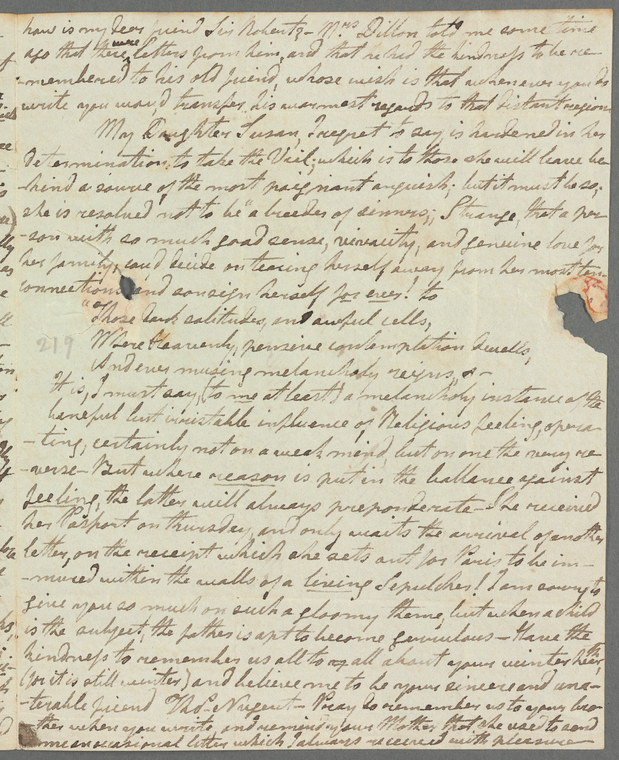 how is my dear friend Sir Robert? - Mrs Dillon told me some time
ago that there were letters from him, and that he had the kindness to be re-
-membered to his old friend, whose wish is that whenever you do
write you wou'd transfer his warmest regards to that distant region
My Daughter Susan, I regret to say is hardened in her
determination to take the Veil; which is to those she will leave be-
-hind a source of the most poignant anguish; but it must be so;
she is resolved not to be "a breeder of sinners;" Strange, that a per-
-son with so much good sense, vivacity, and genuine love for
her family, cou'd decide on tearing herself away from her most
connections and consign herself for ever! to
"Those dark solitudes, and awful cells,
Where Heavenly, pensive contemplation dwells,
And ever musing melancholy reigns, &-
219
It is, I must say, (to me at least) a melancholy instance of the
baneful but irresistable influence of Religious feeling, opera-
-ting, certainly not on a weak mind, but on one the very re-
-verse - But where reason is put in the ballance against
feeling, the latter will always preponderate - She received
her Pasport on thursday, and only waits the arrival of another
letter, on the receipt which she sets out for Paris to be im-
-mured within the walls of a living Sepulcher! I am sorry to
give you so much on such a gloomy theme, but when a child
is the subject, the father is apt to become garrulous - Have the
kindness to remember us all to all about your winter hearth,
(for it is still winter) and believe me to be your sincere and una-
-terable friend Thos. Nugent - Pray do remember us to your bro-
-ther when you write, and remind your Mother that she used to send
me an occasional letter which I always received with pleasure -